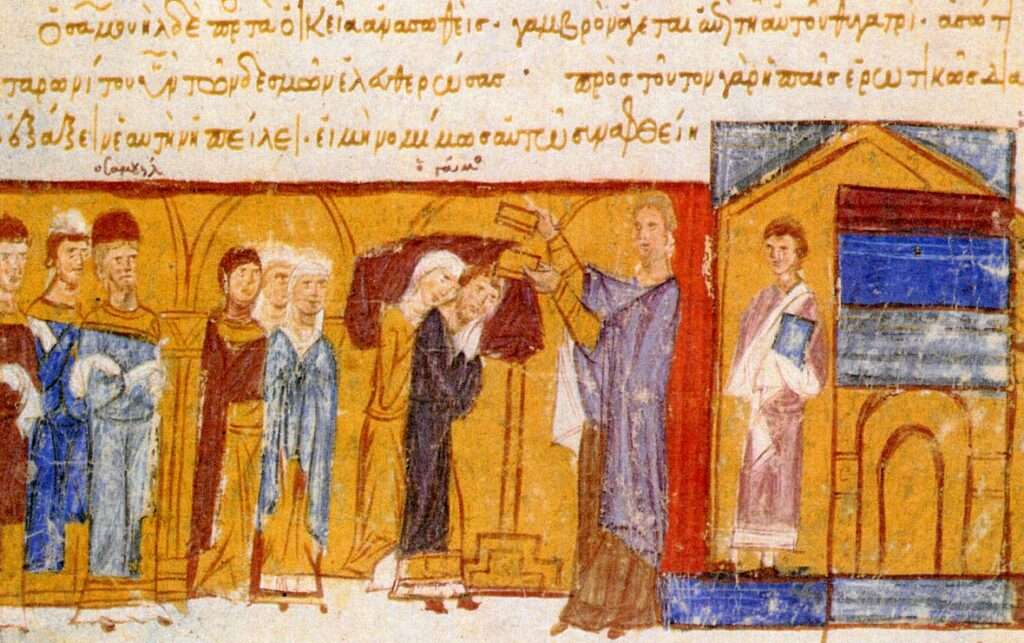 Ὁ σαμουὴλ δὲ πρ τὰ οἰκεῖα ἀνασωθείς· γαμβρὸν ἄγεται τῆ αὐτοῦ θυγατρί· ἀσωτ
ταρωνίτου υν τῶν δεσμῶν ἐλευθερώσας· πρὸς τοῦτον γὰρ ἡ παῖς ἐρωτικῶς δια
ἐξάξειν ἑαυτὴν ἠπείλει· εἰ μὴ νομίμως αὐτῶ συναφθείη
ὁ σαμουήλ ὁ γάμος